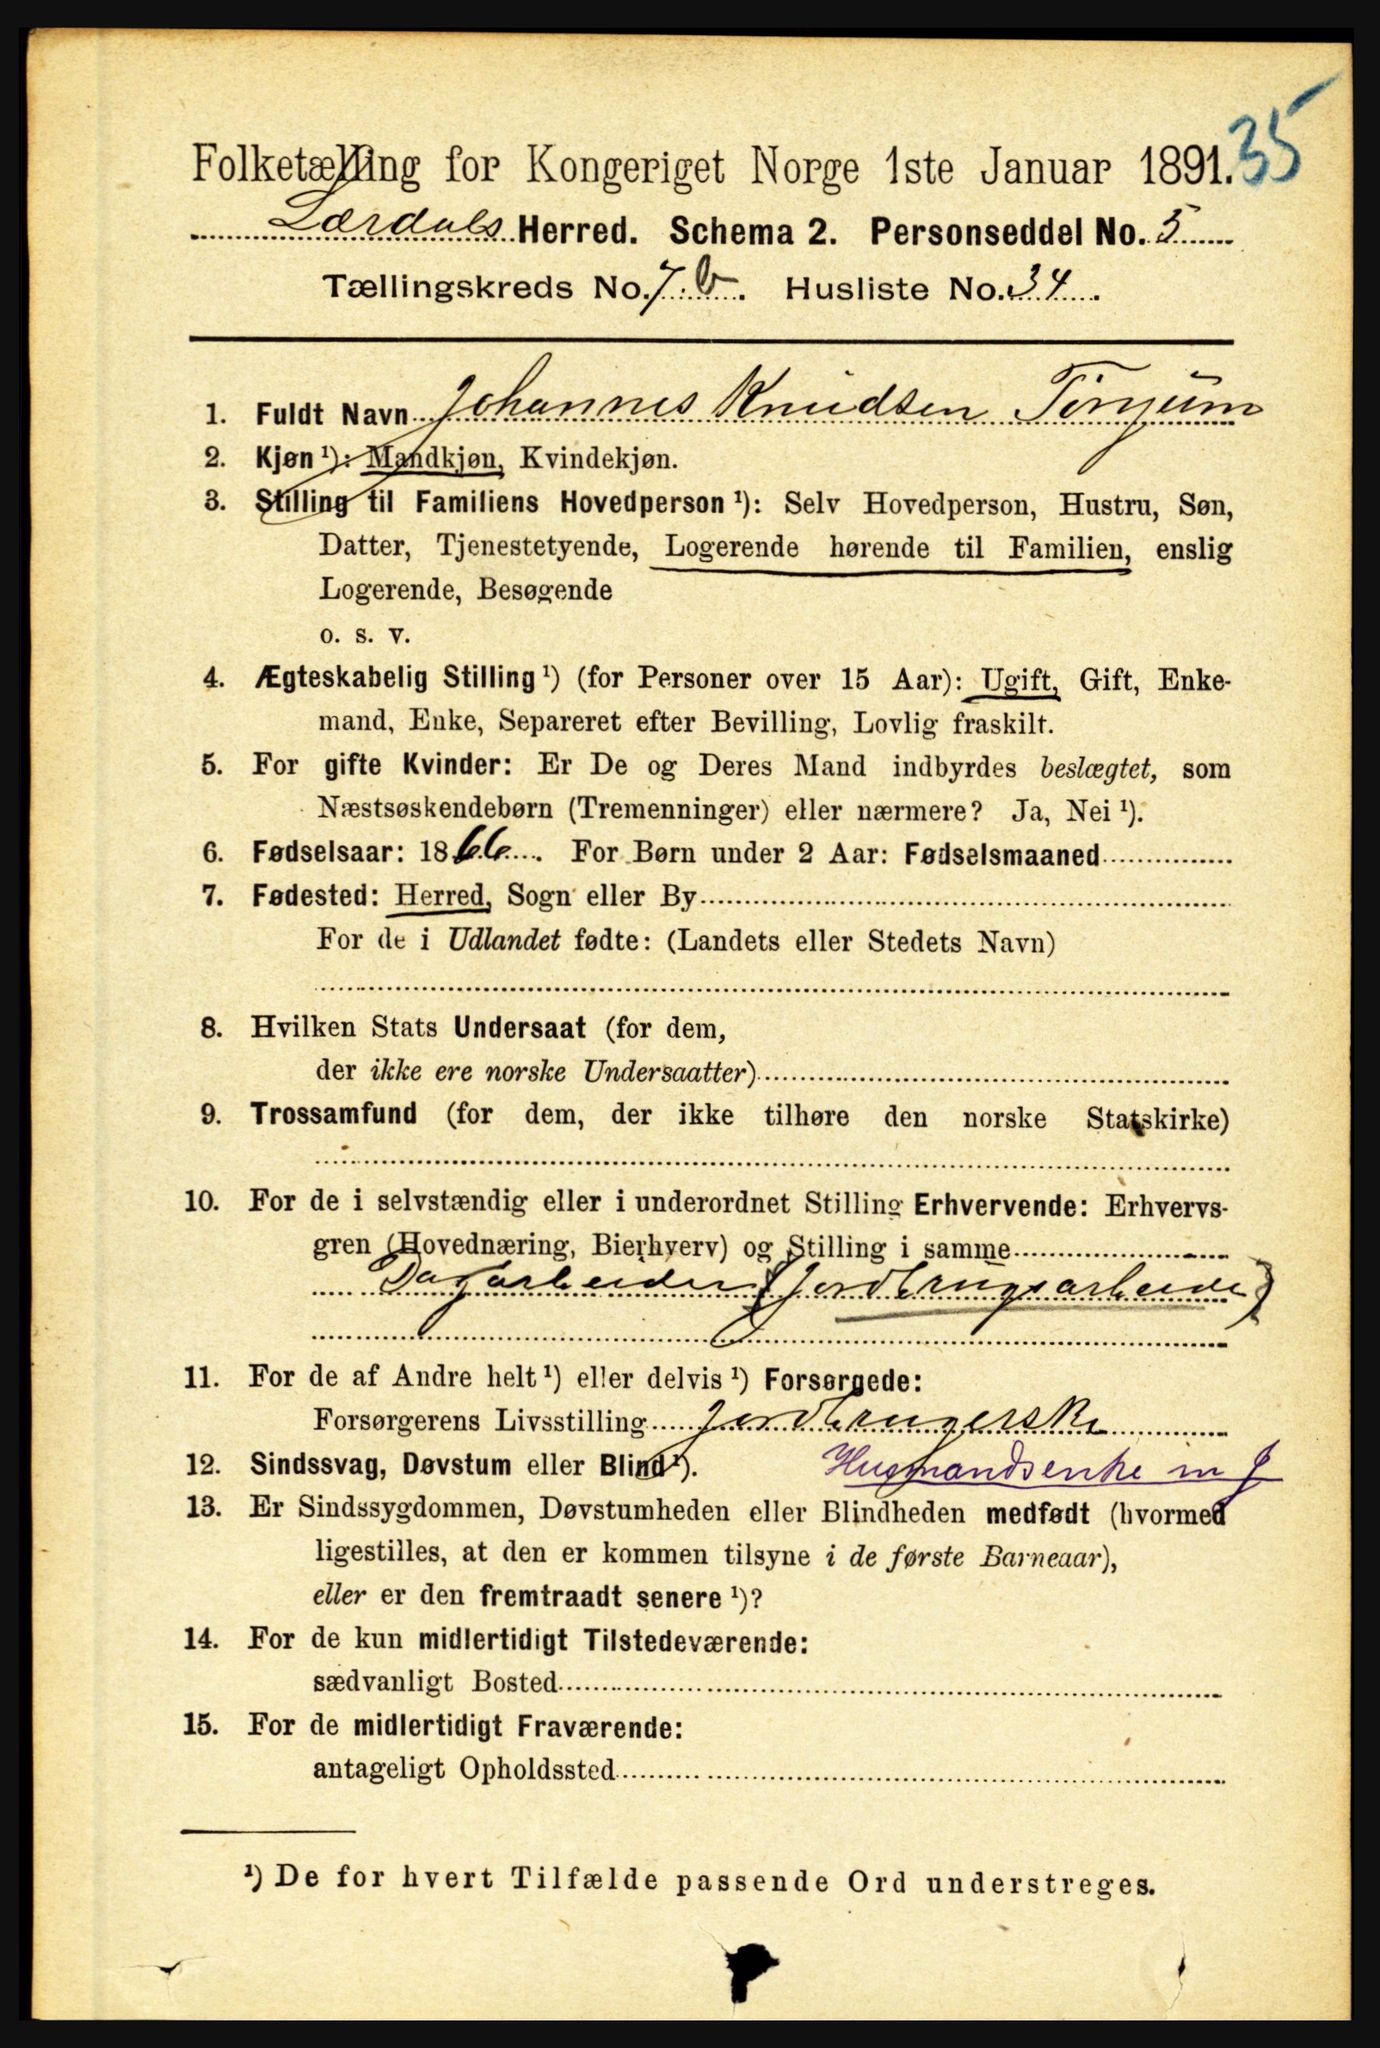 35
Folketælling for Kongeriget Norge 1ste Januar 1891.
Lærdals Herred. Schema 2. Personseddel No. 5
Tællingskreds No. 7.b. Husliste No. 34.
1. Fuldt Navn Johannes Knudsen Tønjum
2. Kjøn ¹): Mandkjøn, Kvindekjøn.
3. Stilling til Familiens Hovedperson ¹): Selv Hovedperson, Hustru, Søn,
Datter, Tjenestetyende, Logerende hørende til Familien, enslig
Logerende, Besøgende
o. s. v.
4. Ægteskabelig Stilling ¹) (for Personer over 15 Aar): Ugift, Gift, Enke-
mand, Enke, Separeret efter Bevilling, Lovlig fraskilt.
5. For gifte Kvinder: Er De og Deres Mand indbyrdes beslægtet, som
Næstsøskendebørn (Tremenninger) eller nærmere? Ja, Nei ¹).
6. Fødselsaar: 1866. For Børn under 2 Aar: Fødselsmaaned
7. Fødested: Herred, Sogn eller By
For de i Udlandet fødte: (Landets eller Stedets Navn)
8. Hvilken Stats Undersaat (for dem,
der ikke ere norske Undersaatter)
9. Trossamfund (for dem, der ikke tilhøre den norske Statskirke)
10. For de i selvstændig eller i underordnet Stilling Erhvervende: Erhvervs-
gren (Hovednæring, Bierhverv) og Stilling i samme
Dagarbeider (Jordbrugsarbeide)
11. For de af Andre helt ¹) eller delvis ¹) Forsørgede:
Forsørgerens Livsstilling Jordbrugerske
12. Sindssvag, Døvstum eller Blind ¹). Husmandsenke m J
13. Er Sindssygdommen, Døvstumheden eller Blindheden medfødt (hvormed
ligestilles, at den er kommen tilsyne i de første Barneaar),
eller er den fremtraadt senere ¹)?
14. For de kun midlertidigt Tilstedeværende:
sædvanligt Bosted
15. For de midlertidigt Fraværende:
antageligt Opholdssted
¹) De for hvert Tilfælde passende Ord understreges.